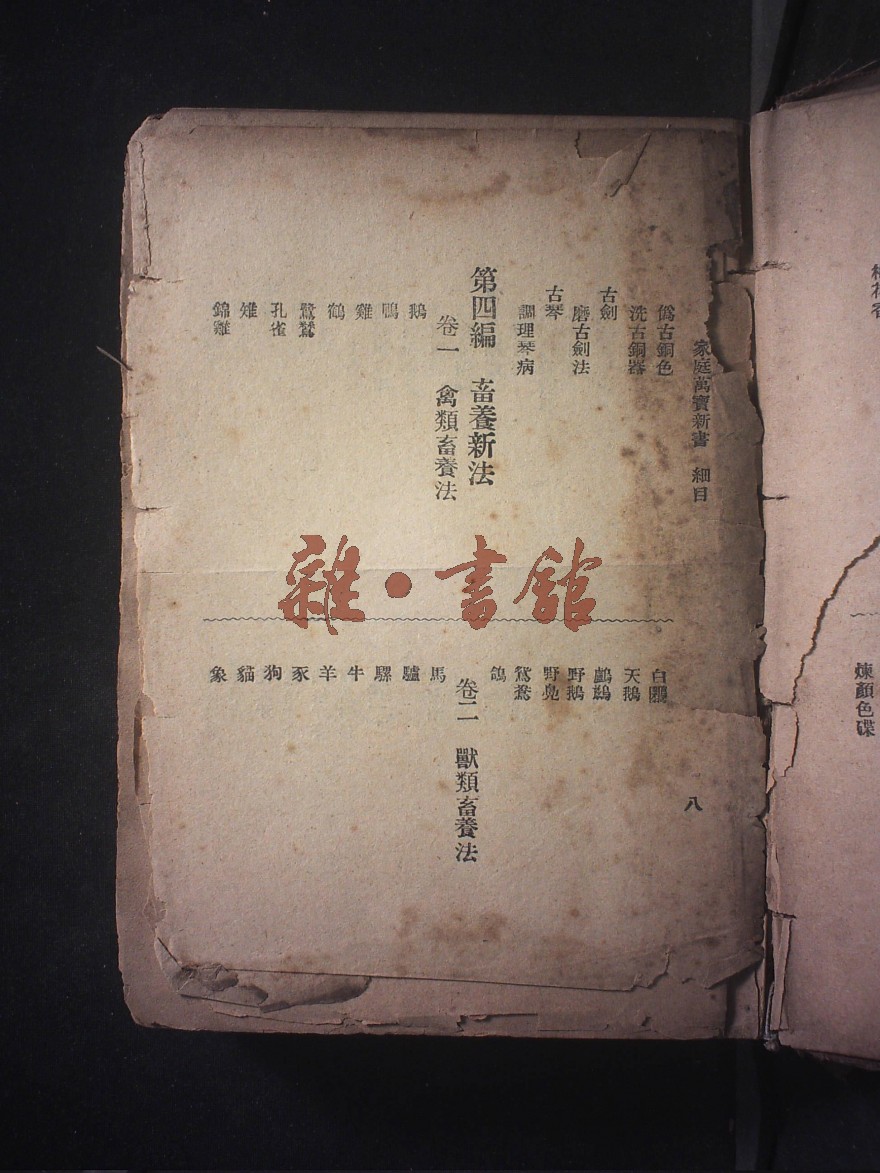 家庭萬寶新書 細目
僞古銅色
洗古銅器
古劍
磨古劍法
古琴
調理琴病
第四編 畜養新法
卷一 禽類畜養法
鵝
鴨
雞
鶴
鷺鷥
孔雀
雉
錦雞
白鷴
天鵝
鸕鶿
野鵝
野鳧
鴛鴦
鴿
卷二 獸類畜養法
馬
驢
騾
牛
羊
豕
狗
貓
象
八
煉顏色碟
雜·書館